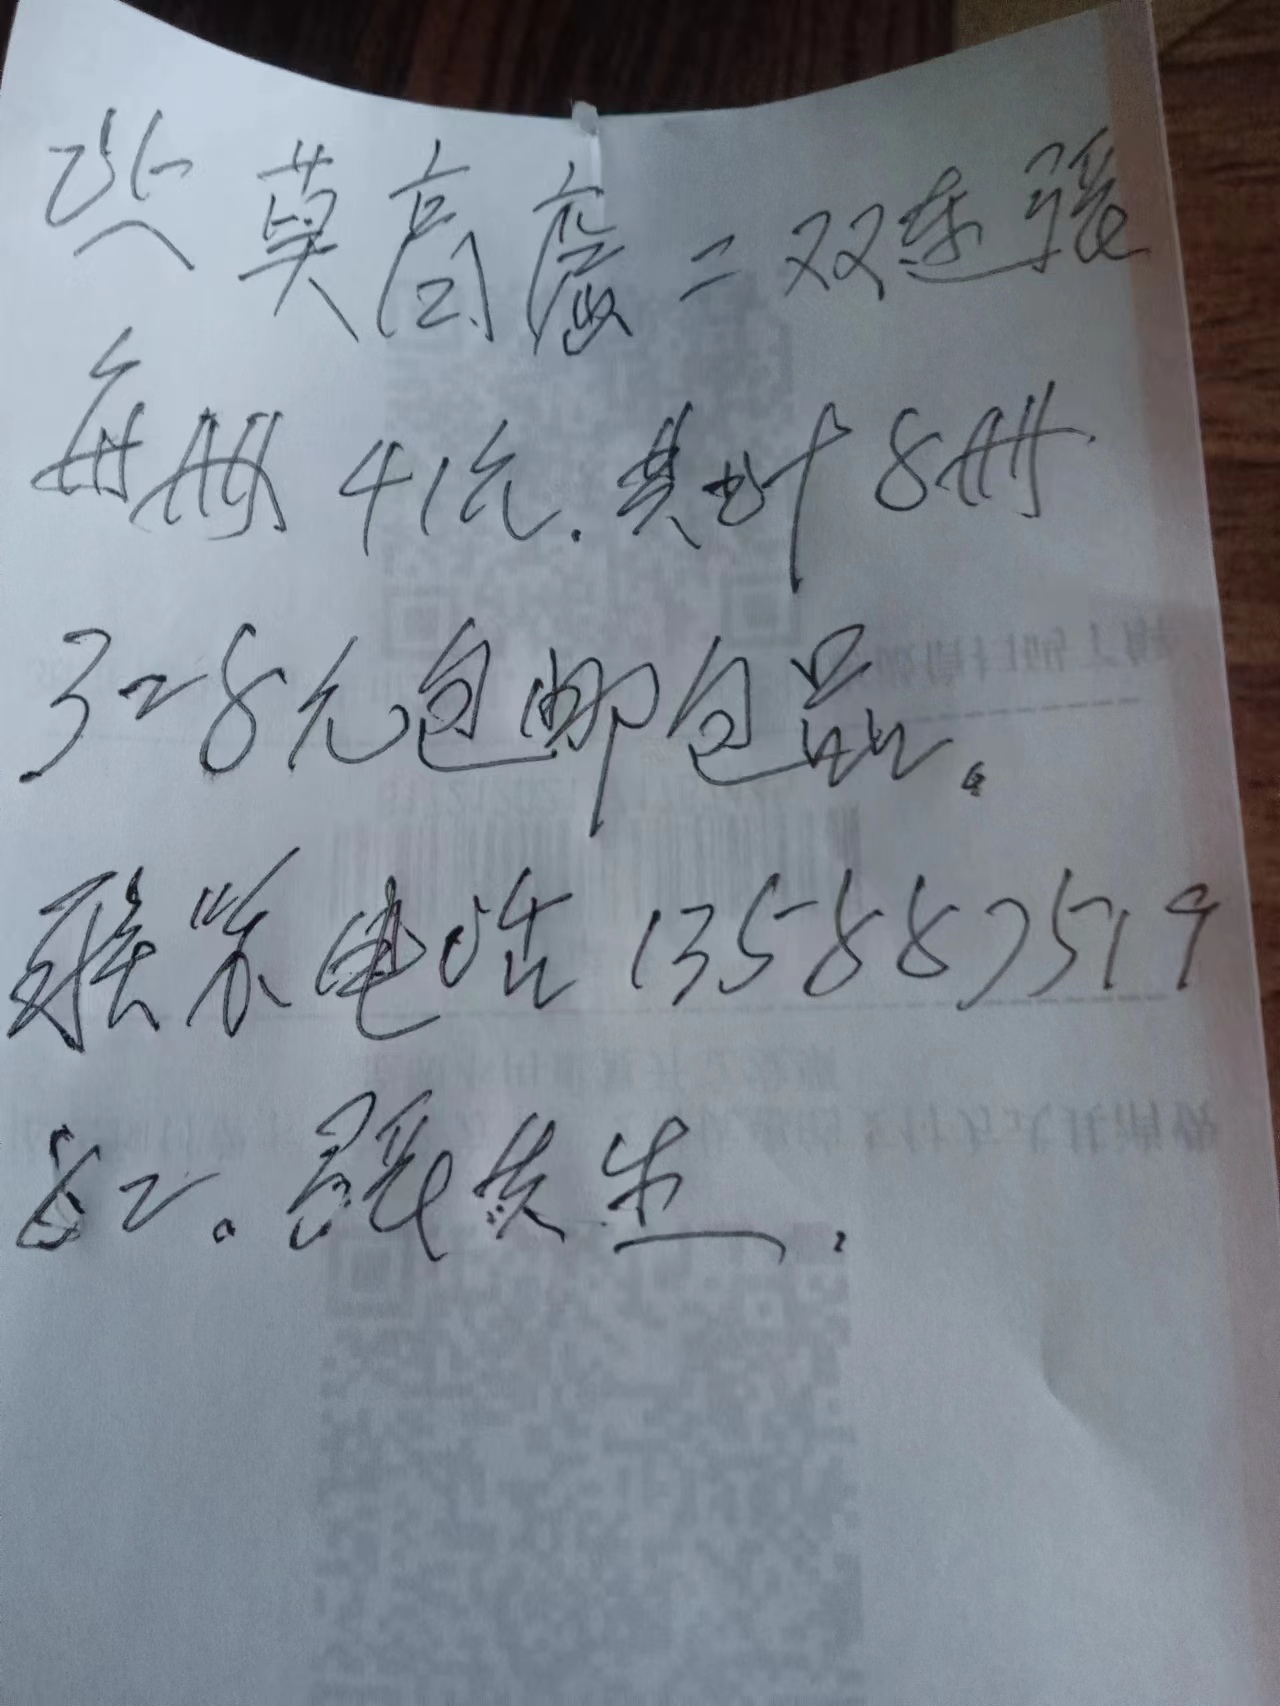 莫高窟二双连张
每册41元.共计8册
328元包邮包品.
联系电话135887519
62.  先生.